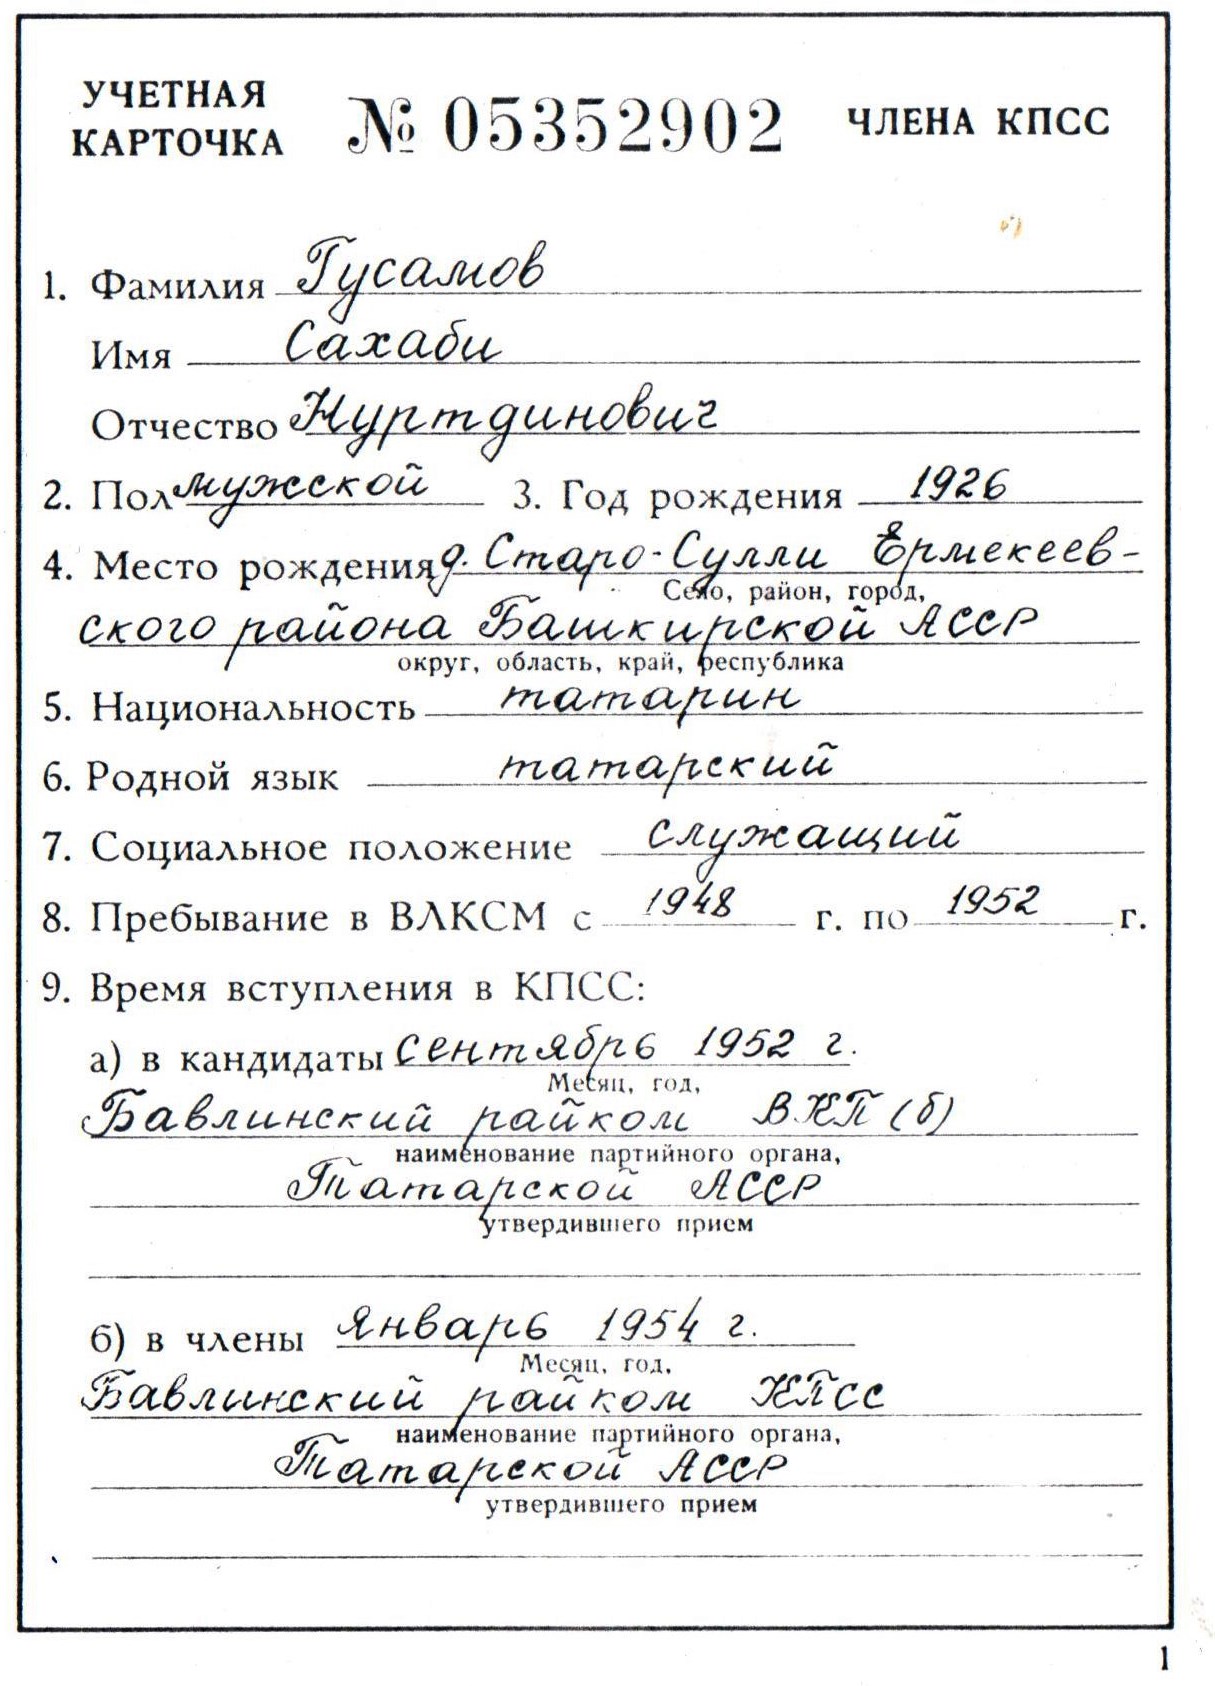 УЧЕТНАЯ КАРТОЧКА № 05352902 ЧЛЕНА КПСС
1. Фамилия Гусамов
Имя Сахаби
Отчество Нуртдинович
2. Пол мужской 3. Год рождения 1926
4. Место рождения д. Старо-Сулли Ермекеев-
Село, район, город,
ского района Башкирской АССР
округ, область, край, республика
5. Национальность татарин
6. Родной язык татарский
7. Социальное положение служащий
8. Пребывание в ВЛКСМ с 1948 г. по 1952 г.
9. Время вступления в КПСС:
а) в кандидаты сентябрь 1952 г.
Месяц, год,
Бавлинский райком ВКП(б)
наименование партийного органа,
Татарской АССР
утвердившего прием
б) в члены январь 1954 г.
Месяц, год,
Бавлинский райком КПСС
наименование партийного органа,
Татарской АССР
утвердившего прием
1